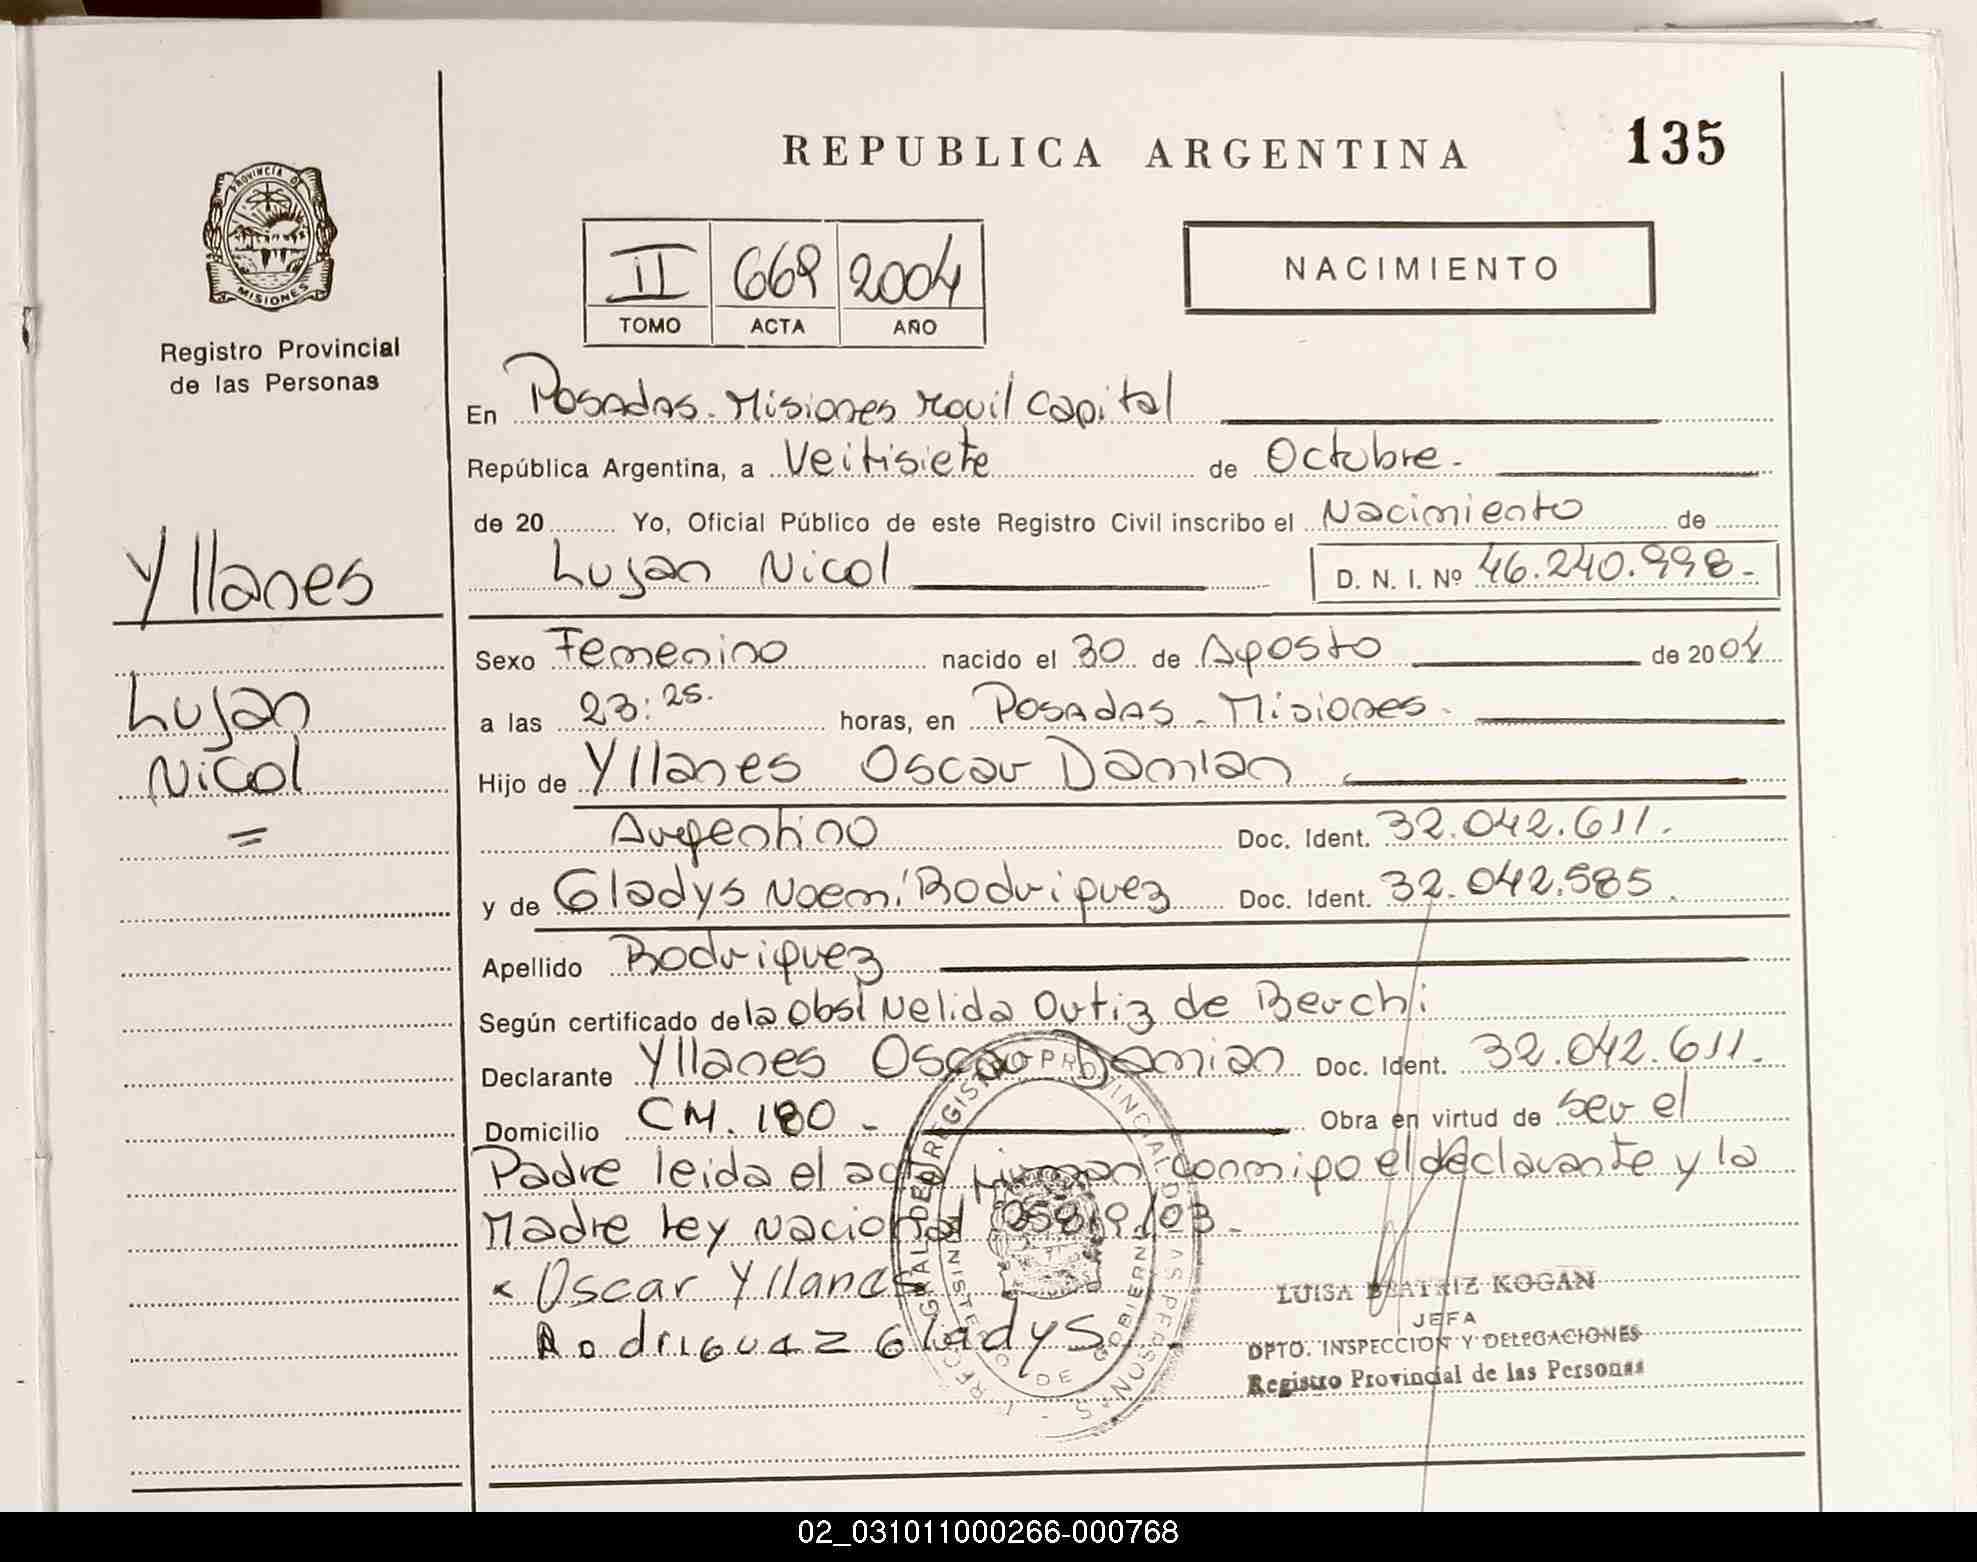 REPUBLICA ARGENTINA
135
PROVINCIA DE
MISIONES
Registro Provincial
de las Personas
II 669 2004
TOMO ACTA AÑO
NACIMIENTO
En Posadas. Misiones Movil Capital
República Argentina, a Veitisiete de Octubre.
de 20 Yo, Oficial Público de este Registro Civil inscribo el Nacimiento de
Lujan Nicol D. N. I. Nº 46.240.998.-
Yllanes
Lujan
Nicol
Sexo Femenino nacido el 30 de Agosto de 2004
a las 23:25. horas, en Posadas - Misiones -
Hijo de Yllanes Oscar Damian
Argentino Doc. Ident. 32.042.611.
y de Gladys Noemi Rodriguez Doc. Ident. 32.042.585.
Apellido Rodriguez
Según certificado de la Obst Nelida Ortiz de Berchi
Declarante Yllanes Oscar Damian Doc. Ident. 32.042.611.
Domicilio CM. 180 - Obra en virtud de ser el
Padre leida el acta firman conmigo el declarante y la
Madre Ley Nacional 25819/03 -
Oscar Yllanes
Rodriguez Gladys
LUISA BEATRIZ KOGAN
JEFA
DPTO. INSPECCION Y DELEGACIONES
Registro Provincial de las Personas
02_031011000266-000768